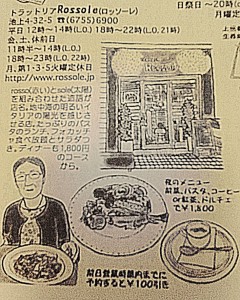 トラットリア Rossole(ロッソーレ)
池上4-32-5 ☎(6755)6900
平日 12時〜14時(L.O.) 18時〜22時(L.O. 21時)
金、土、休前日
11時半〜14時(L.O.)
18時〜23時(L.O. 22時)
月、第1・3・5火曜定休日
http://www.rossole.jp
rosso(赤い)とsole(太陽)
を組み合わせた造語が
店名。地中海の明るいイ
タリアの陽光を感じさ
のパス
タのランチ。フォカッチ
ャ食べ放題とサラダつ
き。ディナーも1,800円
のコース
から。
夜のメニュー
前菜、パスタ、コーヒー
or紅茶、ドルチェ
で¥1,800
前日営業時間内までに
予約すると¥100引き
日祭日〜20時
月曜定休